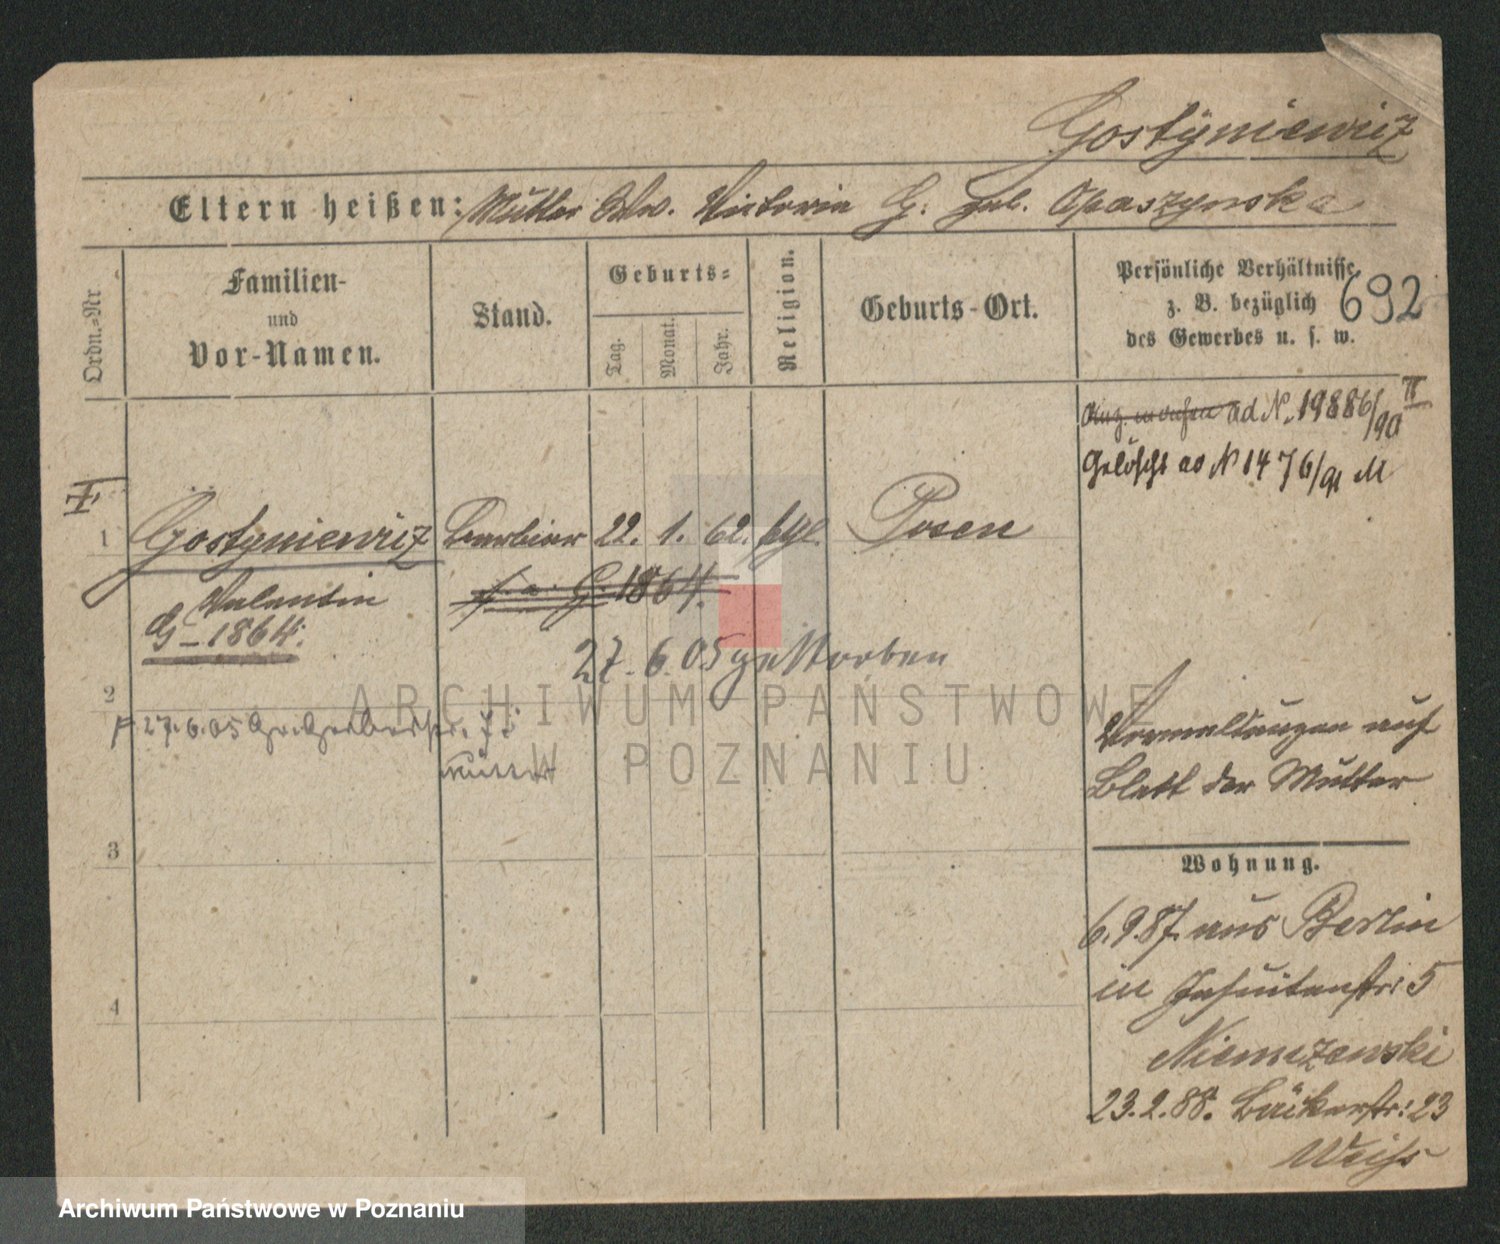 Gostÿniewicz
Eltern heißen: Mutter Ww. Victoria G. geb. Opaszynska
Ordn.-Nr
Familien-
und
Vor-Namen.
Stand.
Geburts-
Tag.
Monat.
Jahr.
Religion.
Geburts-Ort.
Persönliche Verhältnisse
z. B. bezüglich
des Gewerbes u. s. w.
692
ad N. 19886/90 II
Gelöscht ad N 1476/91 M
I
1 Gostyniewicz Barbier 22. 1. 62. ktl. Posen
Valentin
G-1864.
G. 1864.
27.6.05 gestorben
2
27.6.05
Mutter
Vermeldungen auf
Blatt der Mutter
3
Wohnung.
6.9.87. aus Berlin
in Jesuitenstr: 5
Niemczewski
4
23.2.88. Bäckerstr: 23
Weiss
ARCHIWUM PAŃSTWOWE
W POZNANIU
Archiwum Państwowe w Poznaniu